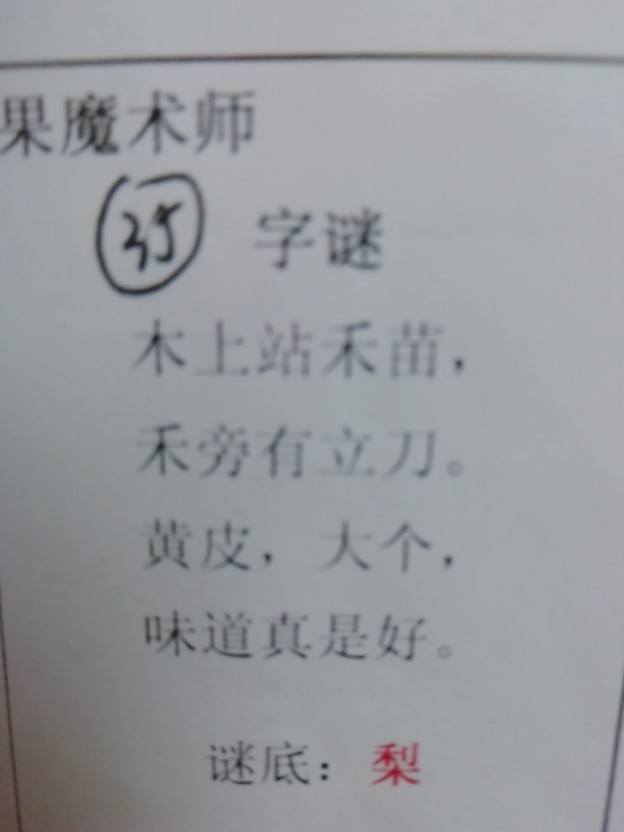 果魔术师
35 字谜
木上站禾苗，
禾旁有立刀。
黄皮，大个，
味道真是好。
谜底：梨